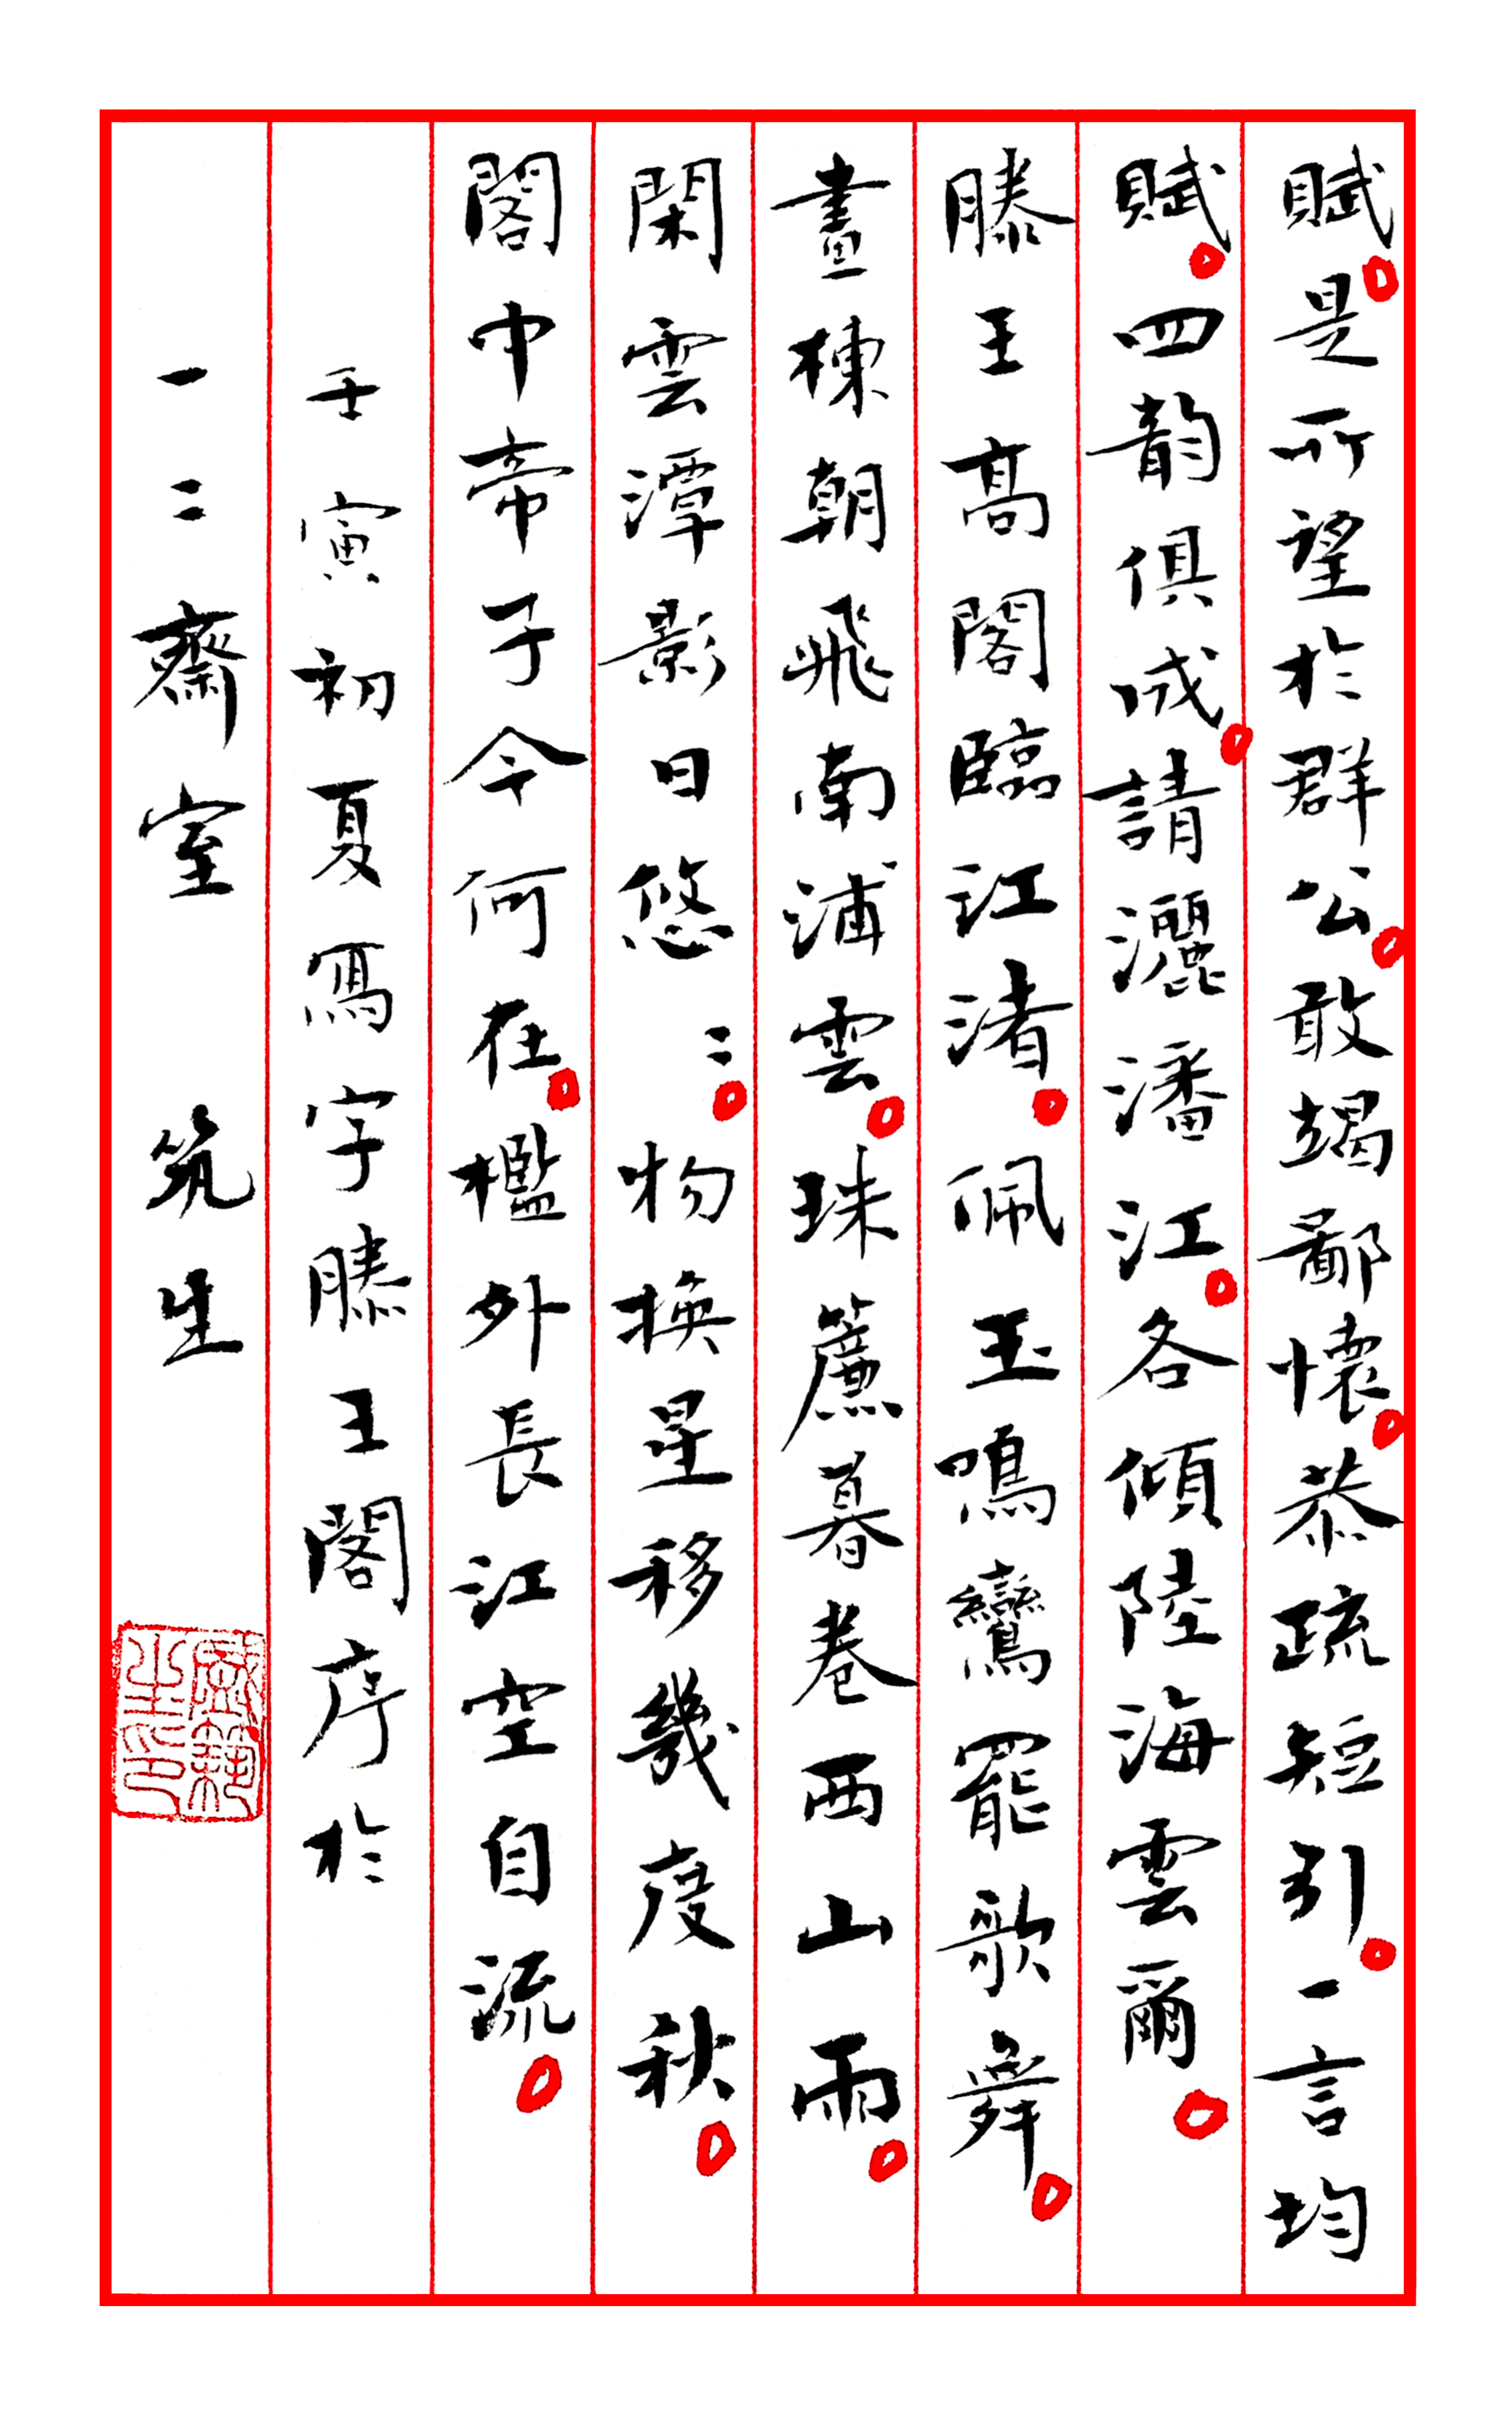 賦。是所望於群公。敢竭鄙懷。恭疏短引。一言均
賦。四韵俱成。請灑潘江。各傾陸海雲爾。
滕王高閣臨江渚。佩玉鳴鸞罷歌舞。
畫棟朝飛南浦雲。珠簾暮卷西山雨。
閑雲潭影日悠〻。物換星移幾度秋。
閣中帝子今何在。檻外長江空自流。
壬寅初夏寫字滕王閣序於
一二齋室 筑生